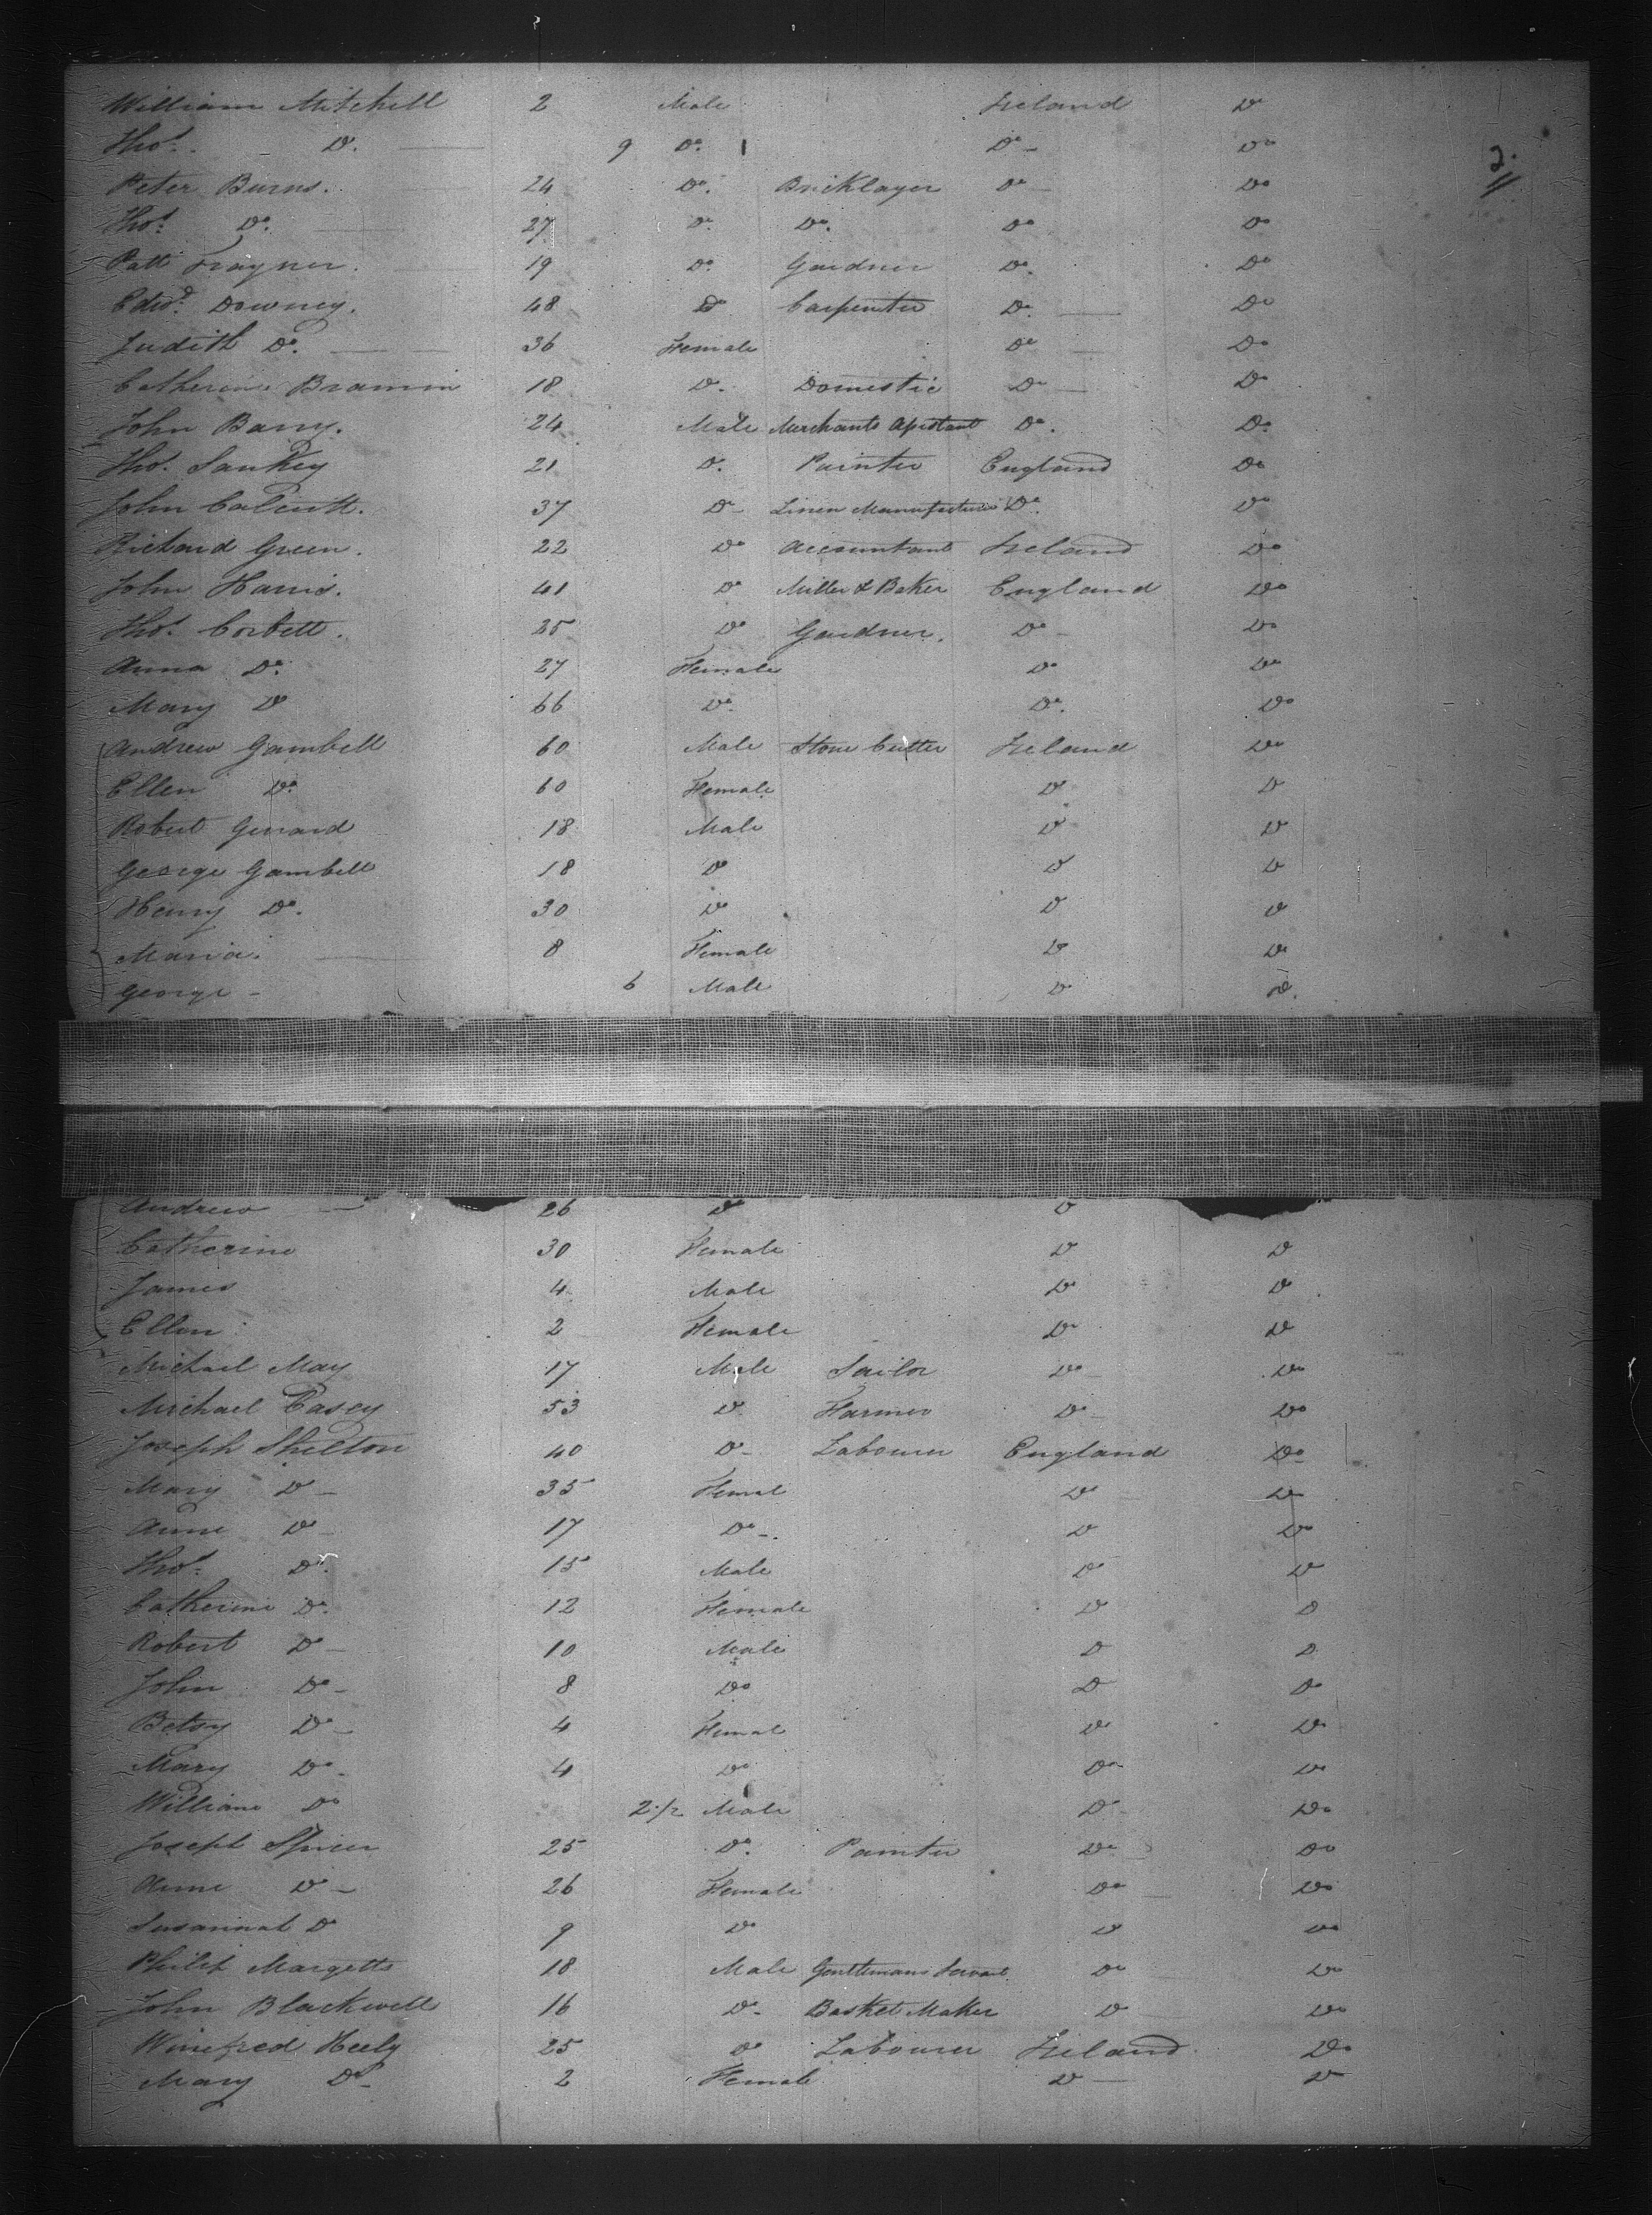 William Mitchell 2 Male Ireland Do
Thos. Do. 9 Do. Do Do
2.
Peter Burns. 24 Do. Bricklayer Do Do
Thos. Do. 27 Do. Do. Do Do
Patt Traynor. 19 Do. Gardner Do. Do
Edwd. Downey. 48 Do Carpenter Do. Do
Judith Do. 36 Female Do Do
Catherine Bramin 18 Do. Domestic Do Do
John Barry. 24 Male Merchants Assistant Do. Do.
Thos. Sankey 21 Do. Painter England Do
John Calcutt. 37 Do Linen Manufacturer Do. Do
Richard Green. 22 Do Accountant Ireland Do
John Harris. 41 Do Miller & Baker England Do
Thos. Corbett. 25 Do Gardner. Do Do
Anna Do. 27 Female Do Do
Mary Do 66 Do. Do. Do
Andrew Gambell 60 Male Stone Cutter Ireland Do
Ellen Do. 60 Female Do Do
Robert Gerrard 18 Male Do Do
George Gambell 18 Do Do Do
Henry Do. 30 Do Do Do
Maria. 8 Female Do Do
George 6 Male Do Do.
Andrew 26 Do Do
Catherine 30 Female Do Do
James 4 Male Do Do
Ellen 2 Female Do Do
Michael May 17 Male Sailor Do Do
Michael Casey 53 Do Farmer Do Do
Joseph Shelton 40 Do Labourer England Do
Mary Do 35 Femal Do Do
Anne Do 17 Do Do Do
Thos. Do. 15 Male Do Do
Catherine Do. 12 Female Do Do
Robert Do 10 Male Do Do
John Do 8 Do Do Do
Betsy Do 4 Femal Do Do
Mary Do 4 Do Do Do
William Do 2 1/2 Male Do Do
Joseph Spicer 25 Do. Painter Do Do
Anne Do 26 Female Do Do
Susannah Do 9 Do Do Do
Philip Margetts 18 Male Gentlemans Servant Do Do
John Blackwell 16 Do Basket Maker Do Do
Winefred Heely 25 Do Labourer Ireland Do
Mary Do 2 Female Do Do